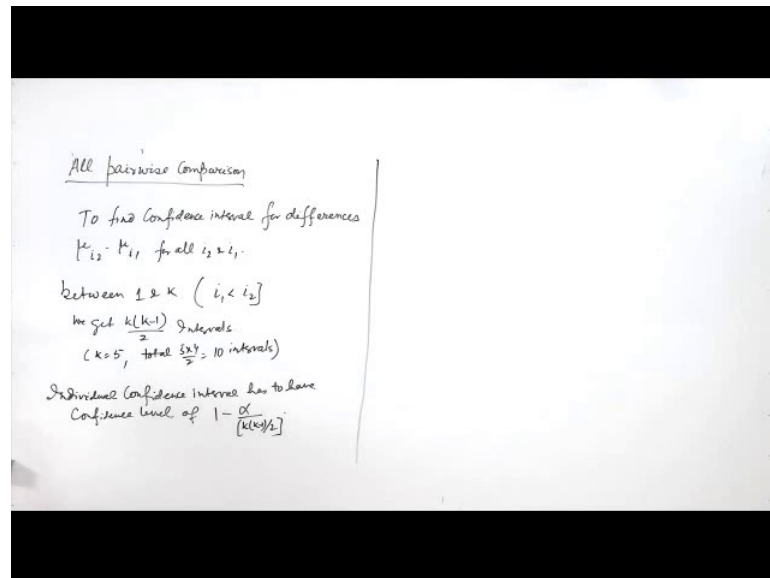 All pairwise Comparison
To find Confidence interval for differences
μi₂ - μi₁ for all i₂ & i₁.
between 1 & K ( i₁ < i₂ ]
We get k(k-1)/2 Intervals
( K = 5, total 5x4/2 = 10 intervals)
Individual Confidence interval has to have
Confidence level of 1 - α/[k(k-1)/2]